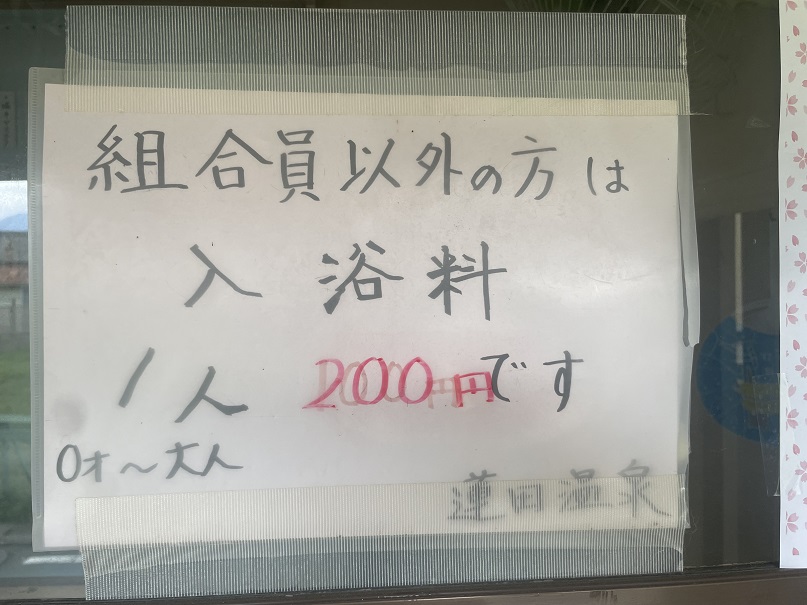 組合員以外の方は
入浴料
1人 200円です
0才～大人
蓮田温泉